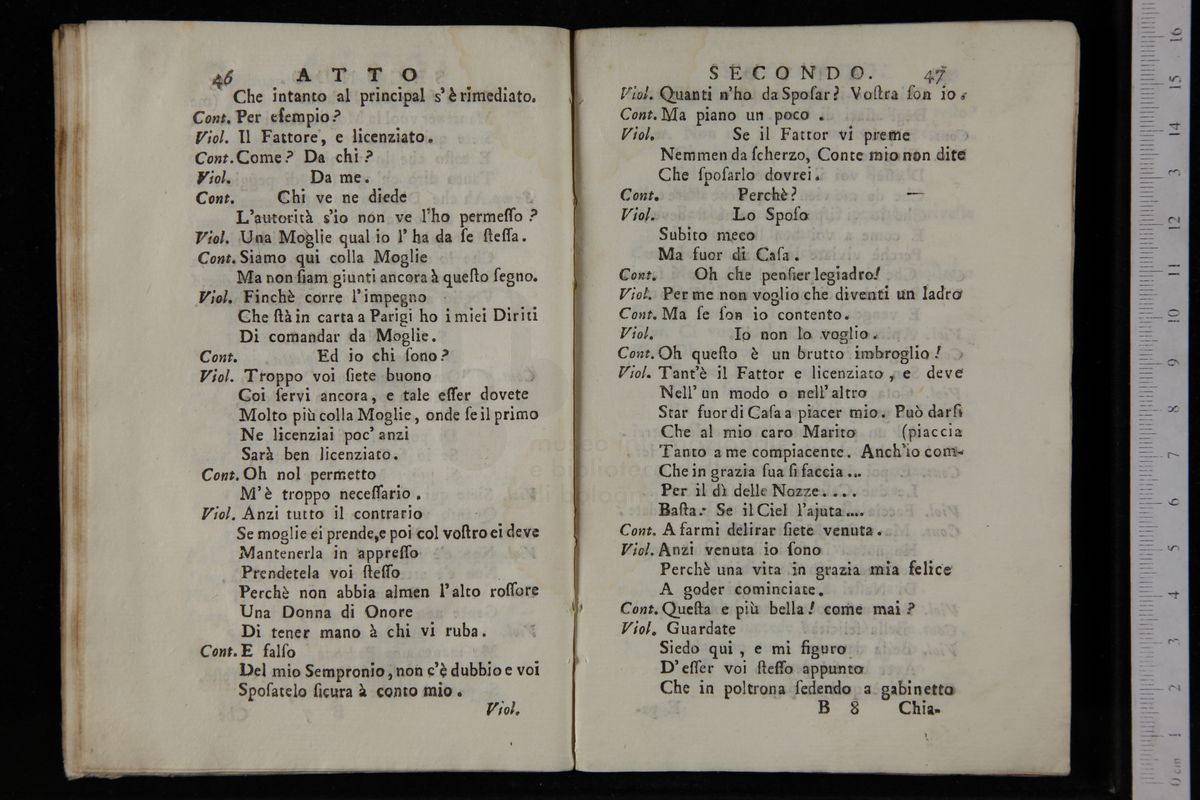 46 ATTO
Che intanto al principal s'è rimediato.
Cont. Per eſempio?
Viol. Il Fattore, e licenziato.
Cont. Come? Da chi?
Viol. Da me.
Cont. Chi ve ne diede
L'autorità s'io non ve l'ho permeſſo?
Viol. Una Moglie qual io l' ha da ſe ſteſſa.
Cont. Siamo qui colla Moglie
Ma non ſiam giunti ancora à queſto ſegno.
Viol. Finchè corre l'impegno
Che ſtà in carta a Parigi ho i miei Diriti
Di comandar da Moglie.
Cont. Ed io chi ſono?
Viol. Troppo voi ſiete buono
Coi ſervi ancora, e tale eſſer dovete
Molto più colla Moglie, onde ſe il primo
Ne licenziai poc' anzi
Sarà ben licenziato.
Cont. Oh nol permetto
M'è troppo neceſſario.
Viol. Anzi tutto il contrario
Se moglie ei prende, e poi col voſtro ei deve
Mantenerla in appreſſo
Prendetela voi ſteſſo
Perchè non abbia almen l'alto roſſore
Una Donna di Onore
Di tener mano à chi vi ruba.
Cont. E falſo
Del mio Sempronio, non c'è dubbio e voi
Spoſatelo ſicura à conto mio.
Viol.
SECONDO. 47
Viol. Quanti n'ho da Spoſar? Voſtra ſon io.
Cont. Ma piano un poco.
Viol. Se il Fattor vi preme
Nemmen da ſcherzo, Conte mio non dite
Che ſpoſarlo dovrei.
Cont. Perchè? —
Viol. Lo Spoſo
Subito meco
Ma fuor di Caſa.
Cont. Oh che penſier legiadro!
Viol. Per me non voglio che diventi un ladro
Cont. Ma ſe ſon io contento.
Viol. Io non lo voglio.
Cont. Oh queſto è un brutto imbroglio!
Viol. Tant'è il Fattor e licenziato, e deve
Nell' un modo o nell' altro
Star fuor di Caſa a piacer mio. Può darſi
Che al mio caro Marito (piaccia
Tanto a me compiacente. Anch'io com-
Che in grazia ſua ſi faccia...
Per il dì delle Nozze....
Baſta: Se il Ciel l'ajuta....
Cont. A farmi delirar ſiete venuta.
Viol. Anzi venuta io ſono
Perchè una vita in grazia mia felice
A goder cominciate.
Cont. Queſta e più bella! come mai?
Viol. Guardate
Siedo qui, e mi figuro
D'eſſer voi ſteſſo appunto
Che in poltrona ſedendo a gabinetto
B 8 Chia-